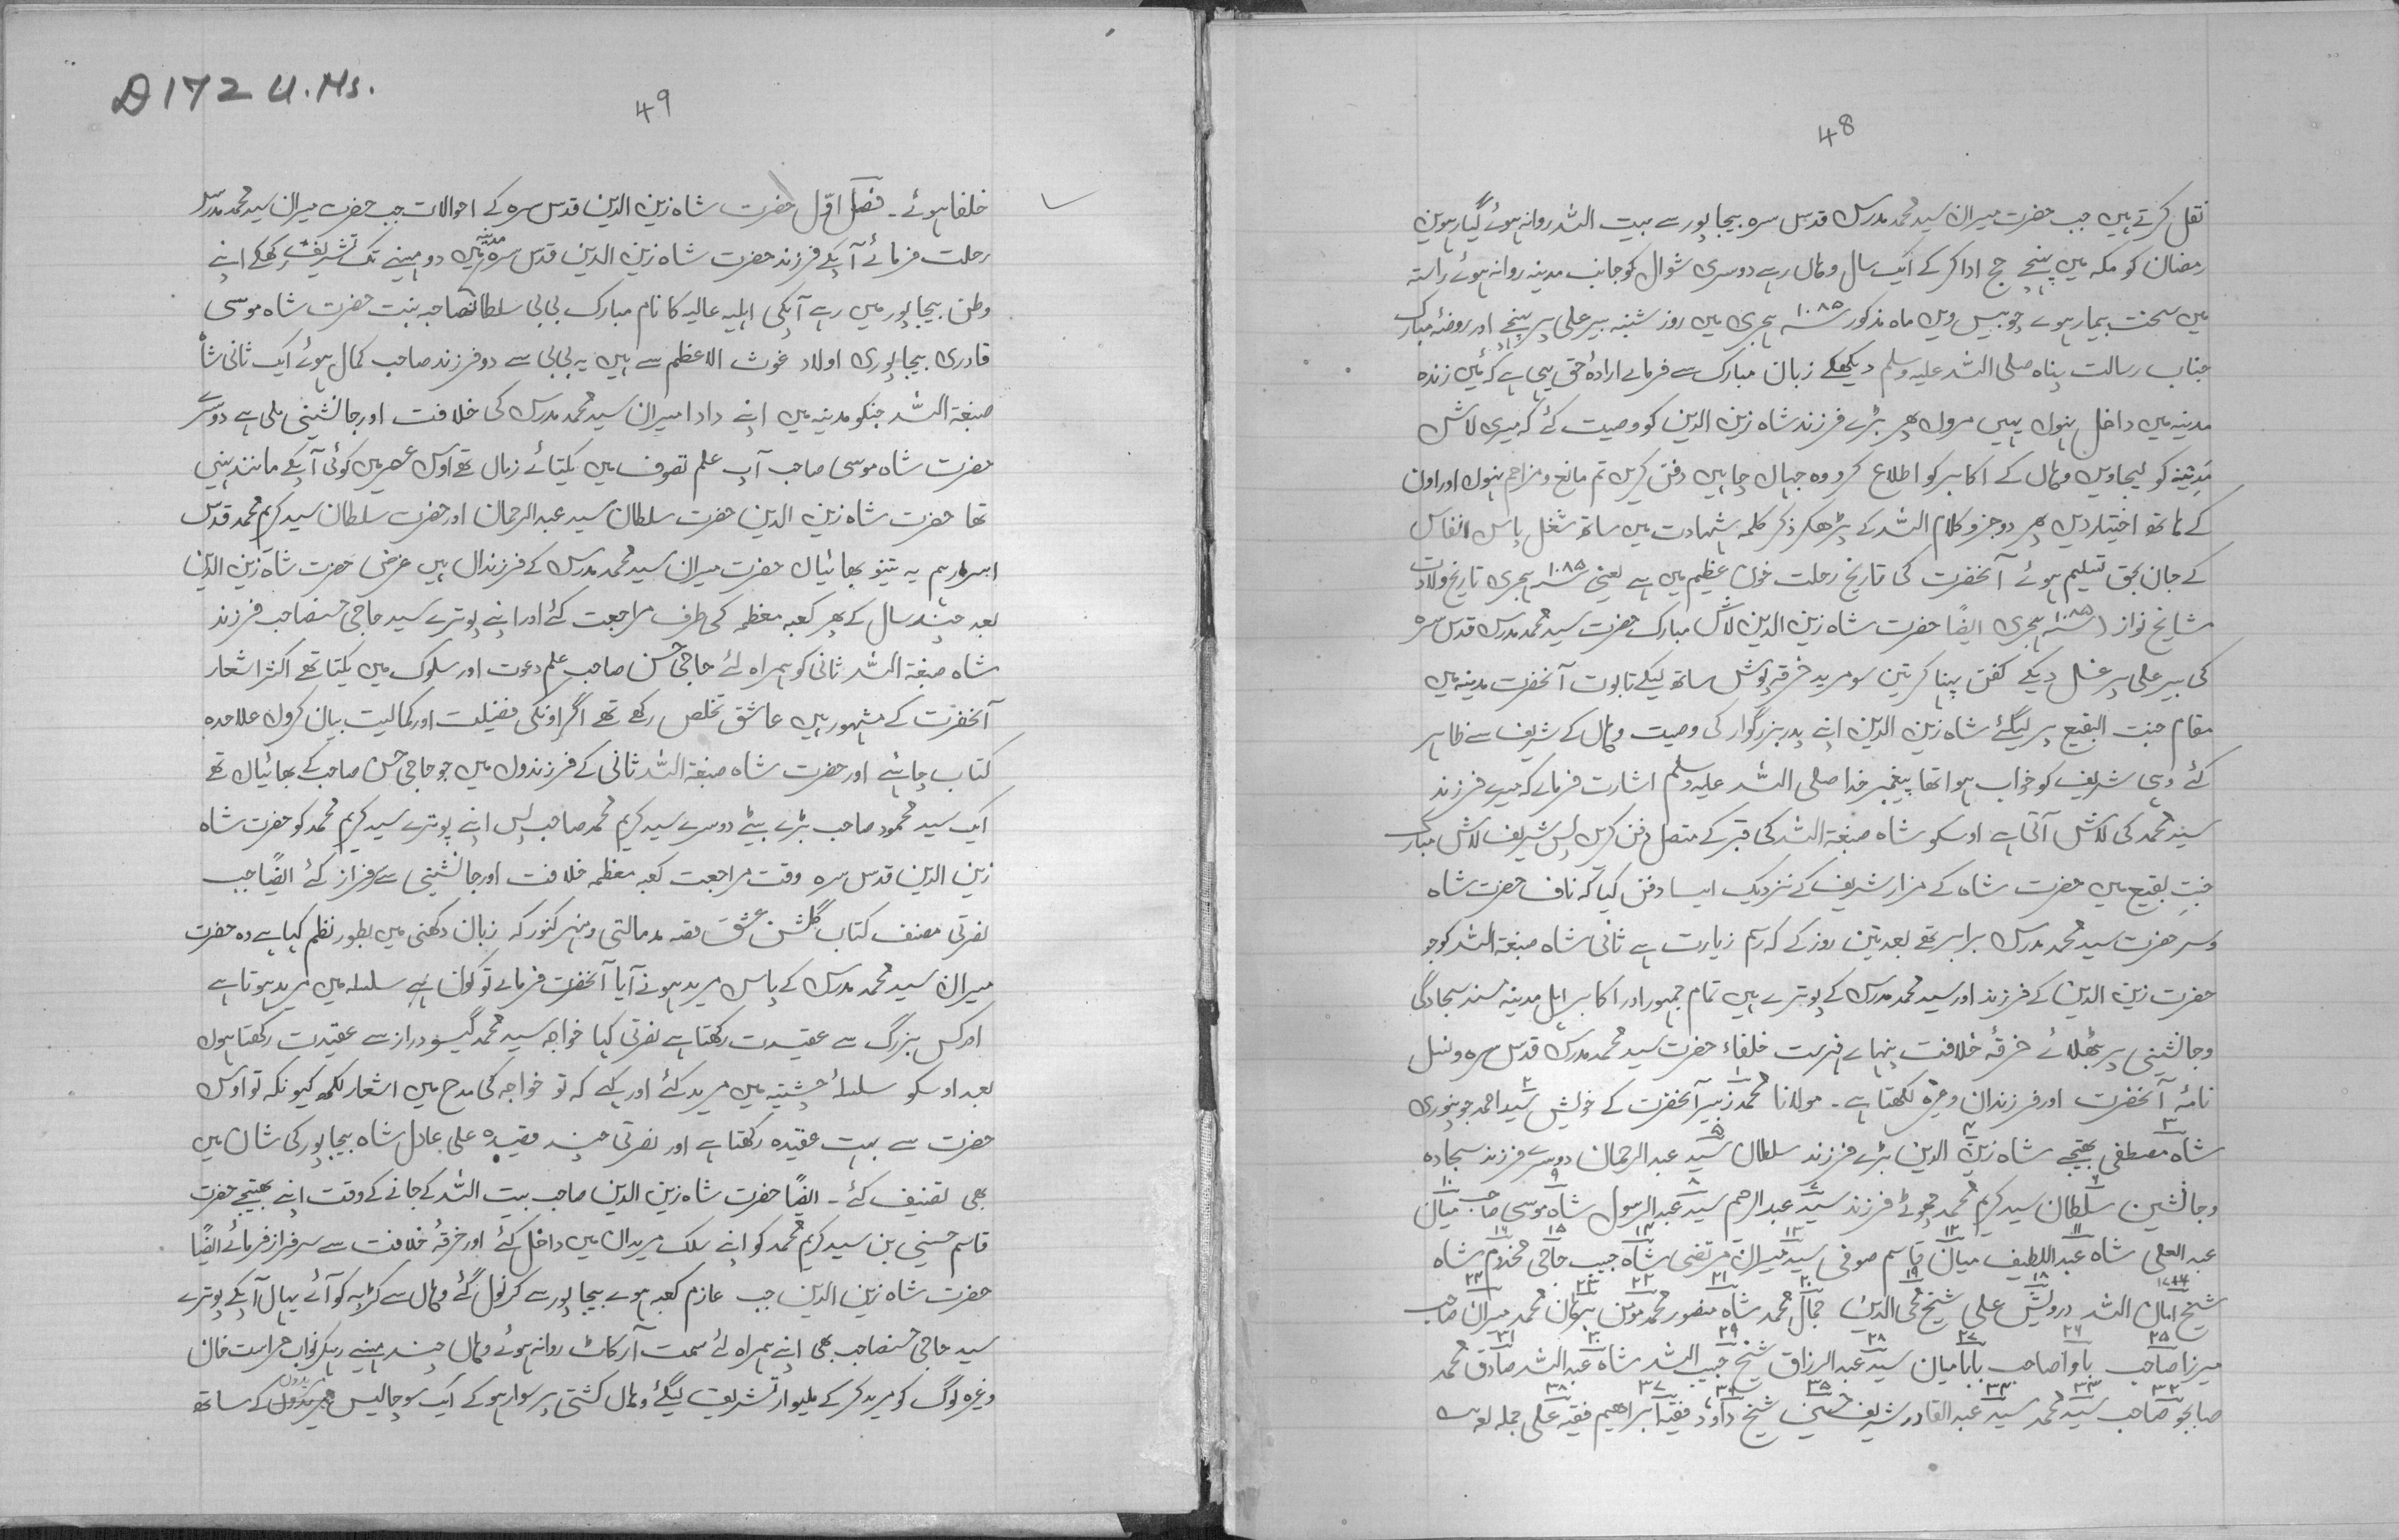 48
نقل کرتے ہیں جب حضرت میران سید محمد مدرس قدس سرہ بیجاپور سے بیت اللہ روانہ ہوئے گیارہویں
رمضان کو مکہ میں پہنچے حج ادا کر کے ایک سال وہاں رہے دوسری شوال کو جانب مدینہ روانہ ہوئے راستہ
میں سخت بیمار ہوے چوبیس ویں ماہ مذکور ۱۰۸۵ سنہ ہجری میں روز شنبہ بیر علی پر پہنچے اور روضۂ مبارک
جناب رسالت پناہ صلی اللہ علیہ وسلم دیکھکے زبان مبارک سے فرمائے ارادۂ حق یہی ہے کہ میں زندہ
مدینہ میں داخل نہوں یہیں مروں پھر بڑے فرزند شاہ زین الدین کو وصیت کئے کہ میری لاش
مدینہ کو لیجاویں وہاں کے اکابر کو اطلاع کرو وہ جہاں چاہیں دفن کریں تم مانع و مزاحم نہوں اور اون
کے ہاتھ اختیار دیں پھر دو جزو کلام اللہ کے پڑھکر ذکر کلمہ شہادت میں ساتھ شغل پاس انفاس
کے جان بحق تسلیم ہوئے آنحضرت کی تاریخ رحلت خون عظیم میں ہے یعنی ۱۰۸۵ سنہ ہجری تاریخ ولادت
مشایخ نواز (۱۰۸۵ سنہ ہجری ایضًا حضرت شاہ زین الدین لاش مبارک حضرت سید محمد مدرس قدس سرہ
کی بیر علی پر غسل دیکے کفن پہنا کر تین سو مرید خرقہ پوش ساتھ لیکے تابوت آنحضرت مدینہ میں
مقام جنت البقیع پر لیگئے شاہ زین الدین اپنے پدر بزرگوار کی وصیت وہاں کے شریف سے ظاہر
کئے وہی شریف کو خواب ہوا تھا پیغمبر خدا صلی اللہ علیہ وسلم اشارت فرمائے کہ میرے فرزند
سید محمد کی لاش آتی ہے اوسکو شاہ صبغۃ اللہ کی قبر کے متصل دفن کریں پس شریف لاش مبارک
جنت بقیع میں حضرت شاہ کے مزار شریف کے نزدیک ایسا دفن کیا کہ ناف حضرت شاہ
و سر حضرت سید محمد مدرس برابر تھے بعد تین روز کے کہ رسم زیارت ہے ثانی شاہ صبغۃ اللہ کو جو
حضرت زین الدین کے فرزند اور سید محمد مدرس کے پوترے ہیں تمام جمہور اور اکابر اہل مدینہ مسند سجادگی
و جانشینی پر بٹھلائے خرقۂ خلافت پنہائے فہرست خلفاء حضرت سید محمد مدرس قدس سرہ و نسل
نامۂ آنحضرت اور فرزندان وغیرہ لکھتا ہے۔ مولانا محمد زبیر آنحضرت کے خویش سید احمد جونپوری
شاہ مصطفی بھتیجے شاہ زین الدین بڑے فرزند سلطان سید عبد الرحمان دوسرے فرزند سجادہ
و جانشین سلطان سید کریم محمد چھوٹے فرزند سید عبد الرحیم سید عبد الرسول شاہ موسی صاحب میاں
عبد العلی شاہ عبد اللطیف میاں قاسم صوفی سید میران مرتضی شاہ حبیب حاجی مخدوم شاہ
شیخ امان اللہ درویش علی شیخ محی الدین جمال محمد شاہ منصور محمد مومن برہان محمد میران صاحب
میرزا صاحب باوا صاحب بابا میاں سید عبد الرزاق شیخ حبیب اللہ شاہ عبد اللہ صادق محمد
صابجو صاحب سید محمد سید عبد القادر شریف حسین شیخ داود فقیہ ابراھیم فقیہ علی جملہ
D 172 U.Ms.
49
خلفا ہوئے۔ فصل اوّل حضرت شاہ زین الدین قدس سرہ کے احوالات جب حضرت میران سید محمد مدرس
رحلت فرمائے آپکے فرزند حضرت شاہ زین الدین قدس سرہ مدینہ میں دو مہینے تک تشریف رکھکے اپنے
وطن بیجاپور میں رہے آپکی اہلیہ عالیہ کا نام مبارک بی بی سلطا نصاحبہ بنت حضرت شاہ موسی
قادری بیجاپوری اولاد غوث الاعظم سے ہیں یہ بی بی سے دو فرزند صاحب کمال ہوئے ایک ثانی شاہ
صبغۃ اللہ جنکو مدینہ میں اپنے دادا میران سید محمد مدرس کی خلافت اور جانشینی ملی ہے دوسرے
حضرت شاہ موسی صاحب آپ علم تصوف میں یکتائے زماں تھے اوس عصر میں کوئی آپکے مانند نہیں
تھا حضرت شاہ زین الدین حضرت سلطان سید عبد الرحمان اور حضرت سلطان سید کریم محمد قدس
اسرارہم یہ تینو بھائیاں حضرت میران سید محمد مدرس کے فرزنداں ہیں غرض حضرت شاہ زین الدین
بعد چند سال کے پھر کعبہ معظمہ کی طرف مراجعت کئے اور اپنے پوترے سید حاجی حسنصاحب فرزند
شاہ صبغۃ اللہ ثانی کو ہمراہ لئے حاجی حسن صاحب علم دعوت اور سلوک میں یکتا تھے اکثر اشعار
آنحضرت کے مشہور ہیں عاشق تخلص رکھے تھے اگر اونکی فضیلت اور کمالیت بیان کروں علاحدہ
کتاب چاہئیے اور حضرت شاہ صبغۃ اللہ ثانی کے فرزندوں میں جو حاجی حسن صاحب کے بھائیاں تھے
ایک سید محمود صاحب بڑے بیٹے دوسرے سید کریم محمد صاحب پس اپنے پوترے سید کریم محمد کو حضرت شاہ
زین الدین قدس سرہ وقت مراجعت کعبہ معظمہ خلافت اور جانشینی سے سرفراز کئے ایضًا جب
نصرتی مصنف کتاب گلشن عشق قصہ مدمالتی و منہر کنور کہ زبان دکھنی میں بطور نظم کہا ہے وہ حضرت
میران سید محمد مدرس کے پاس مرید ہونے آیا آنحضرت فرمائے تو کون ہے سلسلہ میں مرید ہوتا ہے
اور کس بزرگ سے عقیدت رکھتا ہے نصرتی کہا خواجہ سید محمد گیسو دراز سے عقیدت رکھتا ہوں
بعد اوسکو سلسلۂ چشتیہ میں مرید کئے اور کہے کہ تو خواجہ کی مدح میں اشعار لکھ کیونکہ تو اوس
حضرت سے بہت عقیدہ رکھتا ہے اور نصرتی چند قصیدہ علی عادل شاہ بیجاپور کی شان میں
بھی تصنیف کئے۔ ایضًا حضرت شاہ زین الدین صاحب بیت اللہ کے جانے کے وقت اپنے بھتیجے حضرت
قاسم حسینی بن سید کریم محمد کو اپنے سلک مریداں میں داخل کئے اور خرقۂ خلافت سے سرفراز فرمائے ایضًا
حضرت شاہ زین الدین جب عازم کعبہ ہوے بیجاپور سے کرنول گئے وہاں سے کڑپہ کو آئے یہاں آپکے پوترے
سید حاجی حسنصاحب بھی اپنے ہمراہ لئے سمت آرکاٹ روانہ ہوئے وہاں چند مہینے رہکر نواب حراست خان
وغیرہ لوگ کو مرید کر کے ملیوار تشریف لیگئے وہاں کشتی پر سوار ہو کے ایک سو چالیس مریدوں کے ساتھ